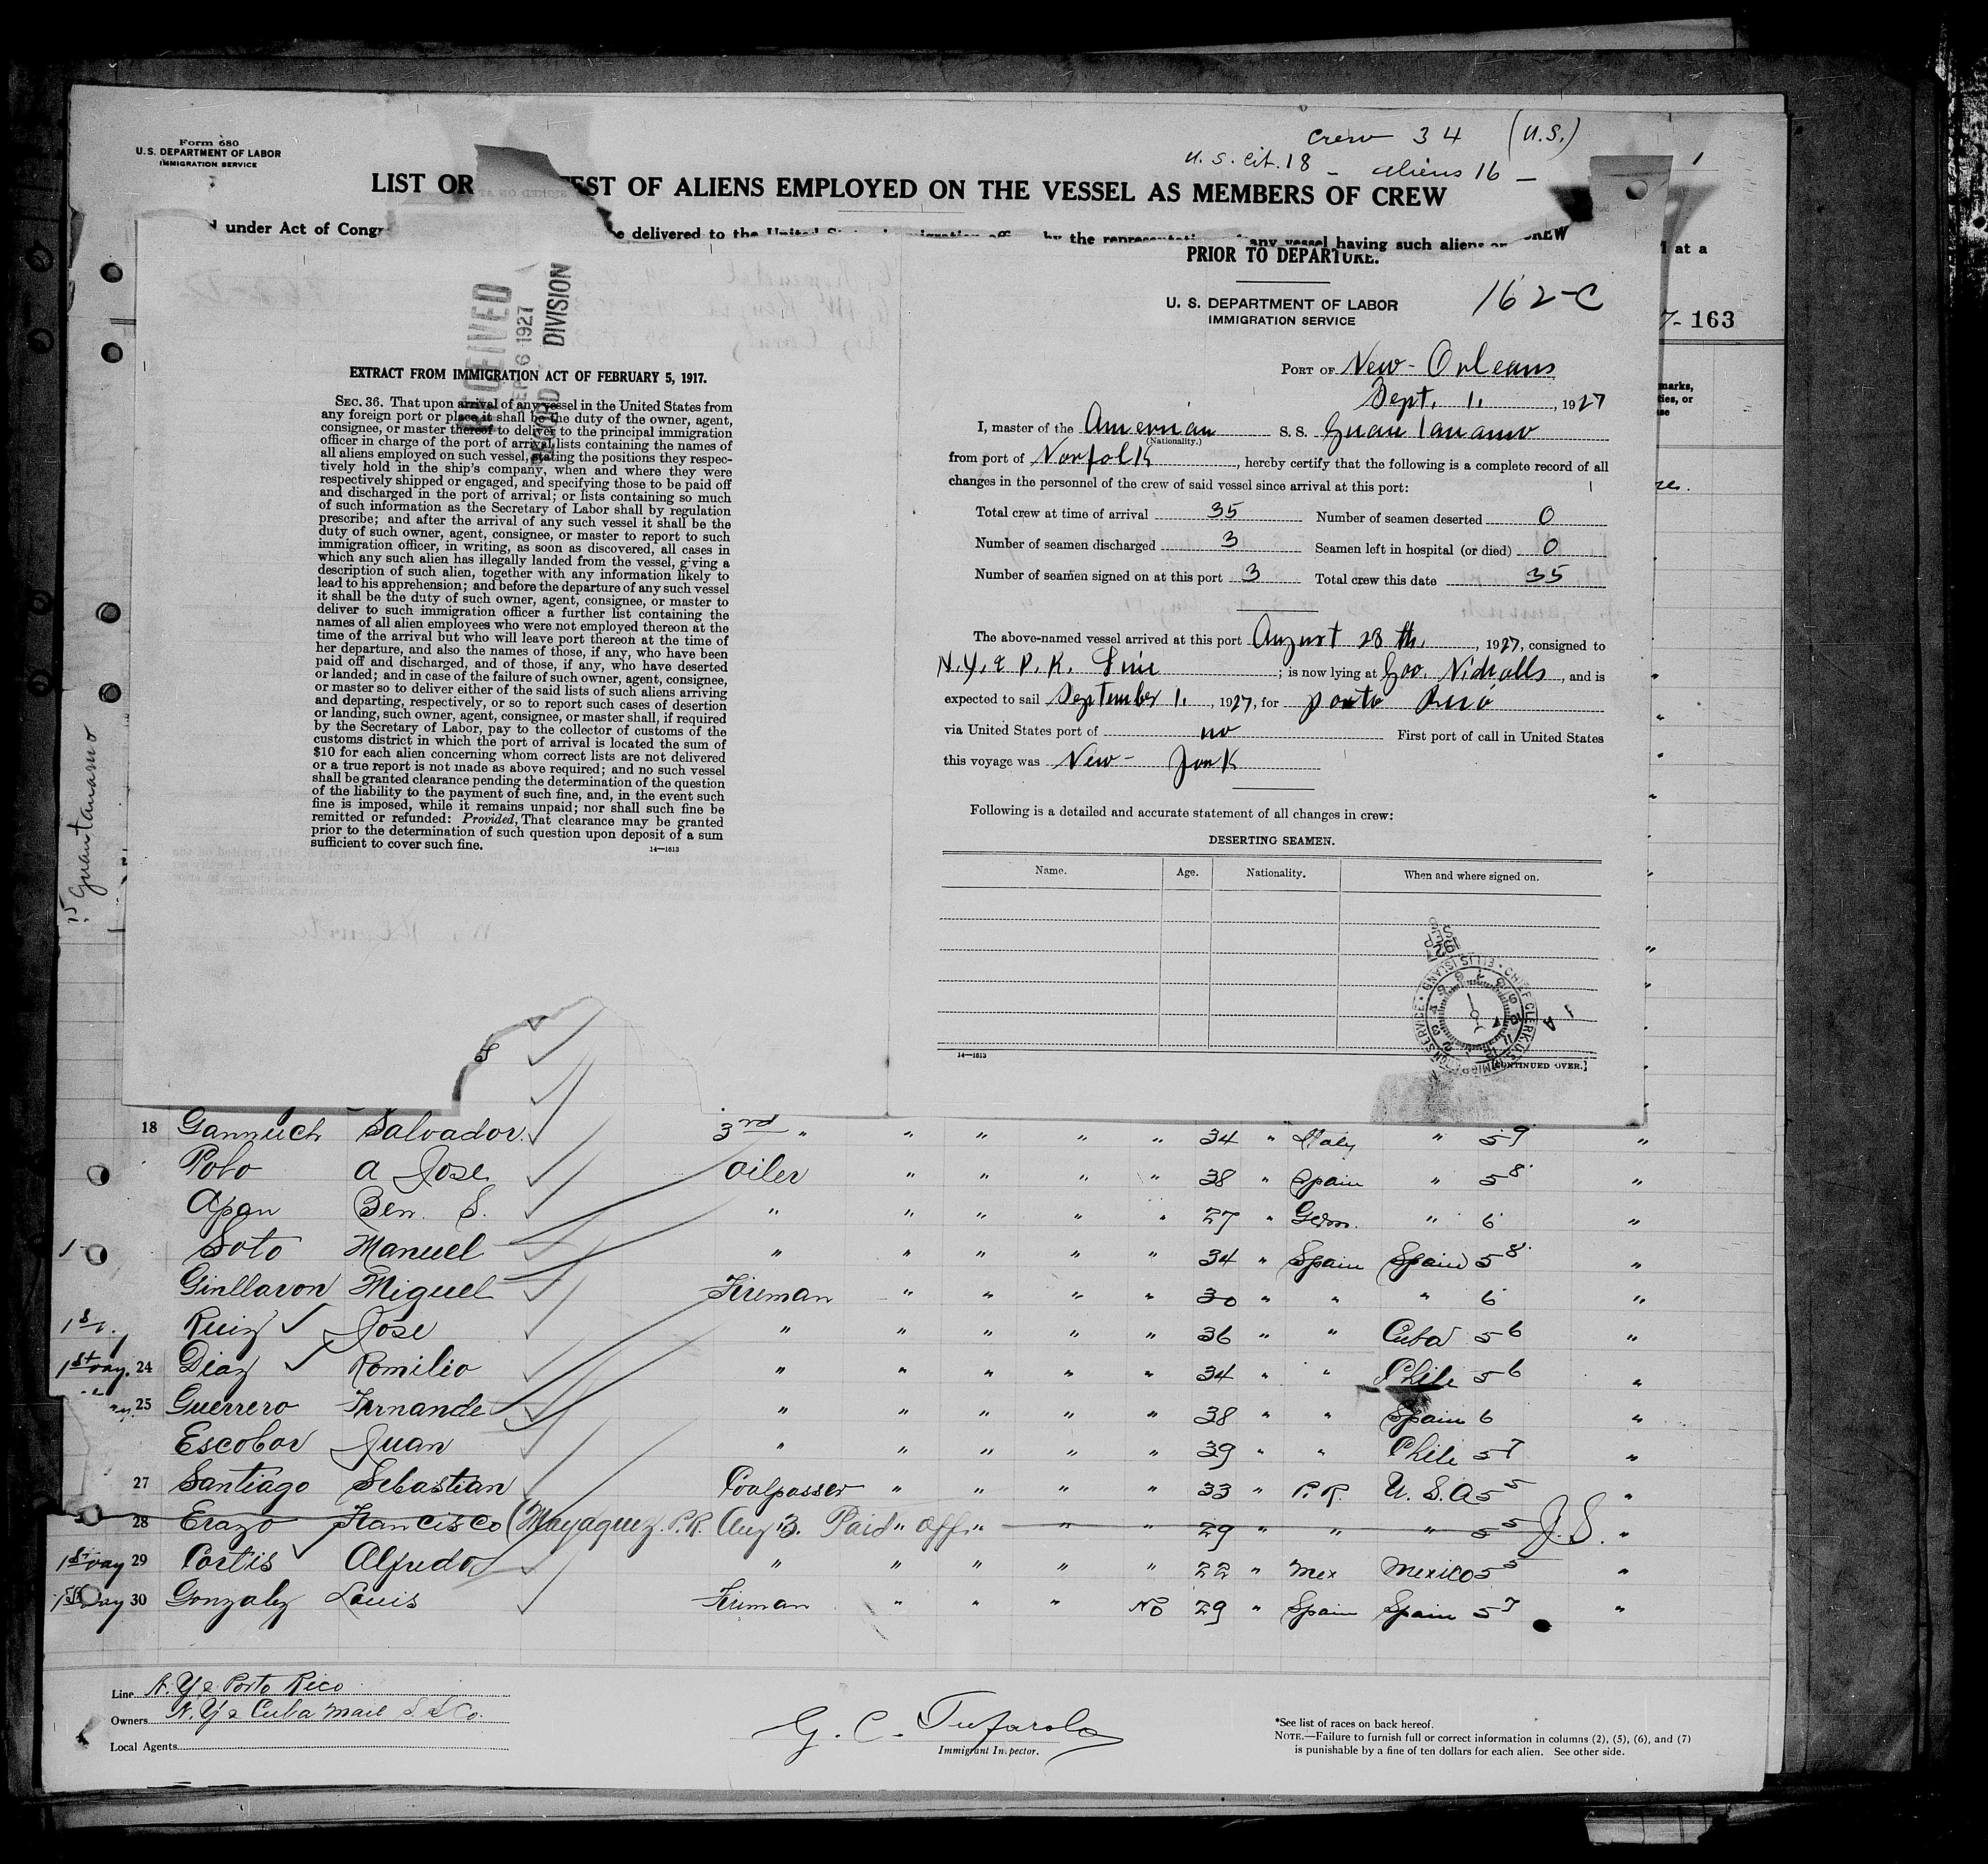 Form 680
U.S. DEPARTMENT OF LABOR
IMMIGRATION SERVICE
Crew 34 (U.S.)
U.S. Cit. 18 - Aliens 16 -
1
LIST OR EST OF ALIENS EMPLOYED ON THE VESSEL AS MEMBERS OF CREW
under Act of Congr e delivered to the United by the any vessel having such aliens
at a
7-163
RECEIVED
SEP 6 1927
RECORD DIVISION
EXTRACT FROM IMMIGRATION ACT OF FEBRUARY 5, 1917.
SEC. 36. That upon arrival of any vessel in the United States from
any foreign port or place it shall be the duty of the owner, agent,
consignee, or master thereof to deliver to the principal immigration
officer in charge of the port of arrival lists containing the names of
all aliens employed on such vessel, stating the positions they respec-
tively hold in the ship's company, when and where they were
respectively shipped or engaged, and specifying those to be paid off
and discharged in the port of arrival; or lists containing so much
of such information as the Secretary of Labor shall by regulation
prescribe; and after the arrival of any such vessel it shall be the
duty of such owner, agent, consignee, or master to report to such
immigration officer, in writing, as soon as discovered, all cases in
which any such alien has illegally landed from the vessel, giving a
description of such alien, together with any information likely to
lead to his apprehension; and before the departure of any such vessel
it shall be the duty of such owner, agent, consignee, or master to
deliver to such immigration officer a further list containing the
names of all alien employees who were not employed thereon at the
time of the arrival but who will leave port thereon at the time of
her departure, and also the names of those, if any, who have been
paid off and discharged, and of those, if any, who have deserted
or landed; and in case of the failure of such owner, agent, consignee,
or master so to deliver either of the said lists of such aliens arriving
and departing, respectively, or so to report such cases of desertion
or landing, such owner, agent, consignee, or master shall, if required
by the Secretary of Labor, pay to the collector of customs of the
customs district in which the port of arrival is located the sum of
$10 for each alien concerning whom correct lists are not delivered
or a true report is not made as above required; and no such vessel
shall be granted clearance pending the determination of the question
of the liability to the payment of such fine, and, in the event such
fine is imposed, while it remains unpaid; nor shall such fine be
remitted or refunded: Provided, That clearance may be granted
prior to the determination of such question upon deposit of a sum
sufficient to cover such fine.
14—1613
Guantanamo
PRIOR TO DEPARTURE.
U. S. DEPARTMENT OF LABOR
IMMIGRATION SERVICE
162-C
PORT OF New-Orleans
Sept. 1., 1927
I, master of the American S. S. Guantanamo
(Nationality.)
from port of Norfolk, hereby certify that the following is a complete record of all
changes in the personnel of the crew of said vessel since arrival at this port:
Total crew at time of arrival 35 Number of seamen deserted 0
Number of seamen discharged 3 Seamen left in hospital (or died) 0
Number of seamen signed on at this port 3 Total crew this date 35
The above-named vessel arrived at this port August 28 th., 1927, consigned to
N.Y. & P.R. Line; is now lying at Gov. Nicholls, and is
expected to sail September 1., 1927, for Porto Rico
via United States port of no First port of call in United States
this voyage was New-York
Following is a detailed and accurate statement of all changes in crew:
DESERTING SEAMEN.
Name. Age. Nationality. When and where signed on.
SEP 1927
CHIEF CLERK, U.S. IMMIGRATION SERVICE • ELLIS ISLAND •
14—1613
[CONTINUED OVER.]
18 Gannuch Salvador 3rd " " " " " 34 " Italy " 5 9 "
Polo A Jose Oiler " " " " 38 " Spain " 5 8 "
Apan Ben. S. " " " " " 27 " Germ. " 6 "
Soto Manuel " " " " " 34 " Spain Spain 5 8 "
Ginllaron Miguel Fireman " " " " 30 " " " 6 "
Ruiz Jose " " " " " 36 " " Cuba 5 6 "
1st Pay. 24 Diaz Romilio " " " " " 34 " " Chile 5 6 "
25 Guerrero Fernande " " " " " 38 " " Spain 6 "
Escobar Juan " " " " " 39 " " Chile 5 7 "
27 Santiago Sebastian Coalpasser " " " " 33 " P.R. U.S.A 5 5 "
28 Erazo Francisco (Mayaguez. P.R. Aug 13. Paid off " " " 29 " " " 5 5 J.S. "
29 Cortis Alfredo " " " " " 22 " Mex Mexico 5 5 "
30 Gonzalez Louis Fireman " " " No 29 " Spain Spain 5 7 "
Line N.Y & Porto Rico
Owners N.Y & Cuba Mail S S Co.
Local Agents
G. C. Tufarolo
Immigrant Inspector.
*See list of races on back hereof.
NOTE.—Failure to furnish full or correct information in columns (2), (5), (6), and (7)
is punishable by a fine of ten dollars for each alien. See other side.